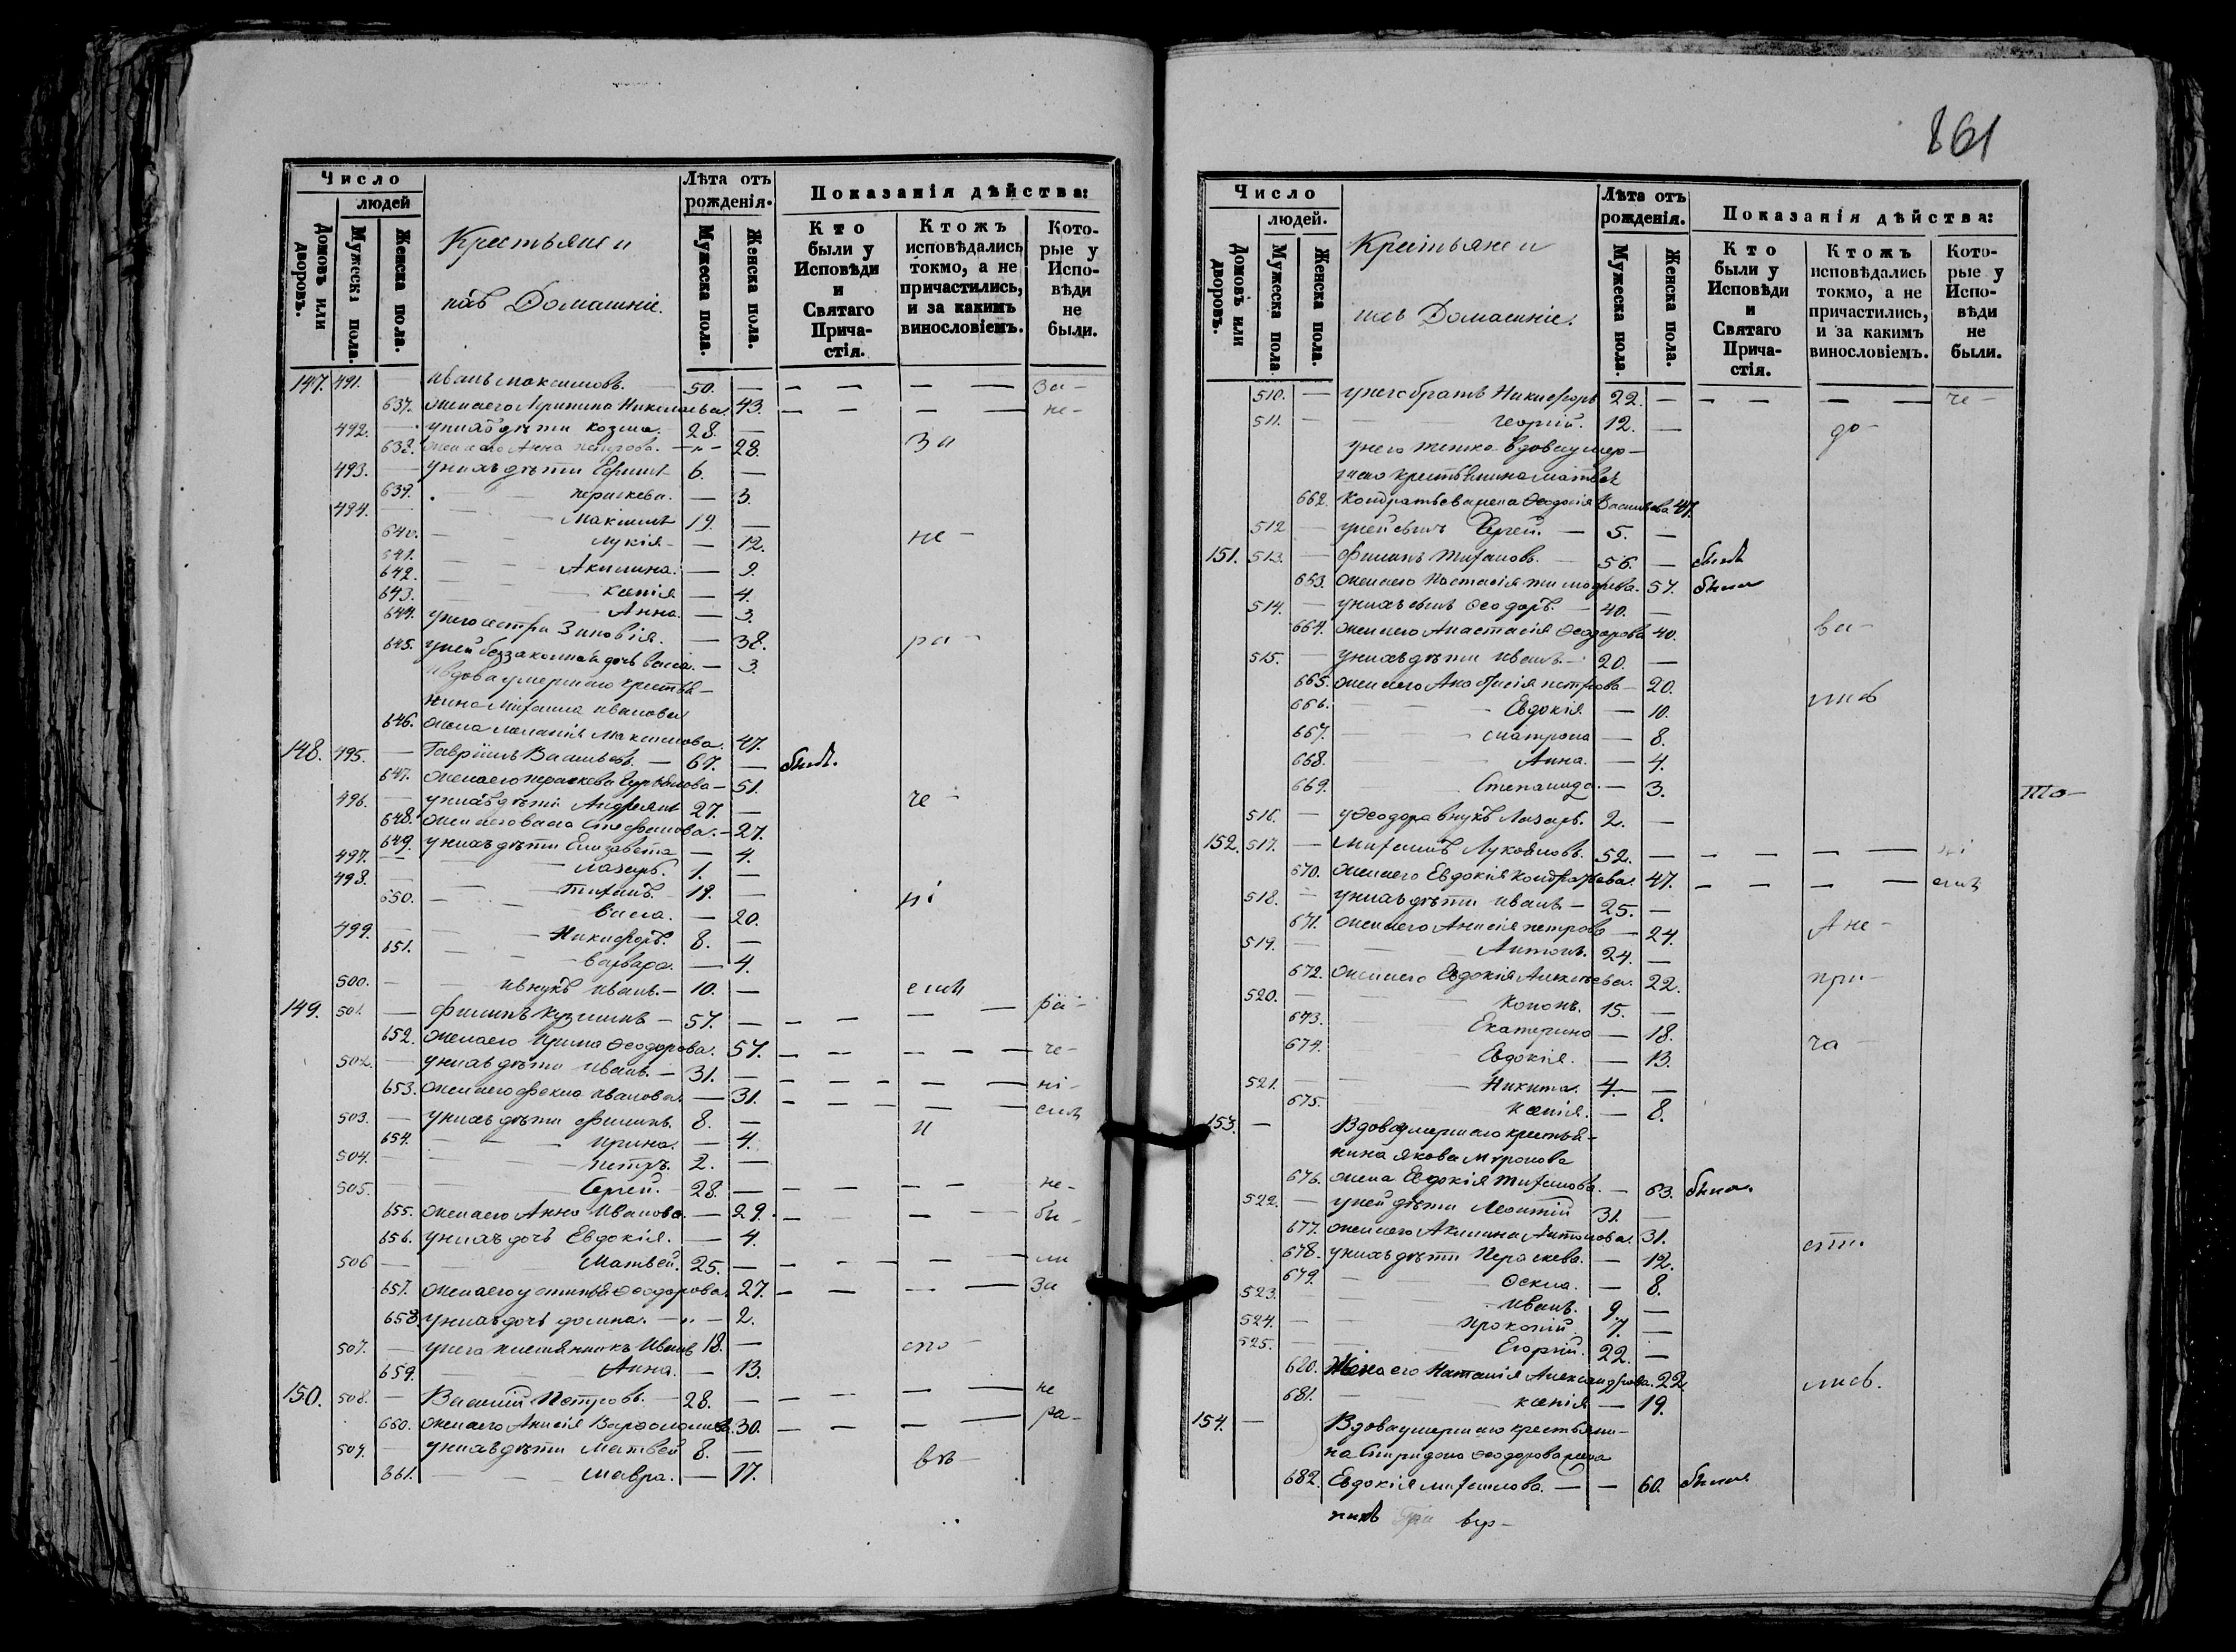 Число
людей
Домовъ или дворовъ.
Мужеска пола.
Женска пола.
Крестьяне и
ихъ Домашніе.
Лѣта отъ рожденія.
Мужеска пола.
Женска пола.
Показанія дѣйства:
Кто были у Исповѣди и Святаго Прича-стія.
Ктожъ исповѣдались токмо, а не причастились, и за какимъ винословіемъ.
Кото-рые у Испо-вѣди не были.
147. 491. — Иванъ Максимовъ. 50. — — — — — за-
637. жена его Ирина Николаева. 43. — — — — не-
492. — у нихъ дѣти Козма. 28. — За
638. жена его Анна Петрова. —„— 28.
493. — у нихъ дѣти Ефимъ 6. —
639. Параскева. — 3.
494. — Максимъ 19. —
640. Лукія — 12. не-
641. Акилина. — 9.
642. Ксенія — 4.
643. Анна. — 3.
644. у него сестра Зиновія. — 38. ра-
645. у ней беззаконная дочь Васса. — 3.
Вдова умершаго крестья-
нина Михаила Иванова
646. жена Меланія Максимова. 47.
148. 495. — Гавріилъ Васильевъ. — 67. — былъ.
647. жена его Параскева — 51.
496. — у нихъ дѣти Андреянъ 27. — че-
648. жена его Васса Стефанова. — 27.
649. у нихъ дѣти Елизавета — 4.
497. — Лазарь. 1. —
498. — Михаилъ. 19. —
650. Васса. — 20. ні
499. — Никифоръ. 8. —
651. Варвара. — 4.
500. — внукъ Иванъ. — 10. — емъ
149. 501. — Филипъ Кузминъ — 57. — — — — — ра-
652. жена его Ирина Ѳеодорова. 57. — — — — че-
502. — у нихъ дѣти Иванъ. — 31. — — — — — ні-
653. жена его Фекла Иванова. — 31. — — — — емъ
503. — у нихъ дѣти Филипъ. 8. — и
654. Ирина. — 4.
504. — Петръ. 2. —
505. — Сергей. 28. — — — — — не-
655. жена его Анна Иванова. — 29. — — — бы-
656. у нихъ дочь Евдокія. — 4.
506 — Матвей. 25. — — — — — ли
657. жена его Устинья Ѳеодорова. 27. — — — — За
658. у нихъ дочь Домна. —„— 2.
507. — у него племянникъ Иванъ 18. — спо
659. Анна. — 13.
150. 508. — Василій Петровъ. 28. — — — — — не
660. жена его Анисія Варѳоломѣева. 30. — — — — ра-
509. — у нихъ дѣти Матвей 8. — въ-
661. Мавра. — 17.
861
Число
людей.
Домовъ или дворовъ.
Мужеска пола.
Женска пола.
Крестьяне и
ихъ Домашніе.
Лѣта отъ рожденія.
Мужеска пола.
Женска пола.
Показанія дѣйства:
Кто были у Исповѣди и Святаго Прича-стія.
Ктожъ исповѣдались токмо, а не причастились, и за какимъ винословіемъ.
Кото-рые у Испо-вѣди не были.
510. — у него братъ Никифоръ 22. — — — — — че-
511. — Георгій. 12. — до-
у него тетка вдова умер-
шаго крестьянина Матвея
662. Кондратьева жена Ѳеодосія Васильева 47.
512 — у ней сынъ Сергей. — 5. —
151. 513. — Филипъ Михайловъ. 56. — былъ
663. жена его Настасія 57. была
514. — у нихъ сынъ Ѳеодоръ. — 40. —
664. жена его Анастасія Ѳеодорова 40. ва-
515. — у нихъ дѣти Иванъ. — 20. —
665. жена его Петрова — 20.
666. Евдокія — 10. ніемъ
667. Матрона — 8.
668. Анна. — 4.
669. Степанида — 3.
то-
516. — у Ѳеодора внукъ Лазарь. 2. —
152. 517. — Михаилъ Лукояновъ. 52. — — — — — ні
670. жена его Евдокія Кондратьева. 47. — — — — емъ
518. — у нихъ дѣти Иванъ. — 25. —
671. жена его Анисія Петрова — 24. А не-
519. — Антонъ. 24. —
672. жена его Евдокія Алексеева. 22. при-
520. — Кононъ. 15. —
673. Екатерина — 18.
674. Евдокія. — 13. ча-
521. — Никита. 4. —
675. Ксенія. — 8.
153. — Вдова умершаго крестья-
нина Якова Миронова
676. жена Евдокія Михайлова. — 63. была.
522. — у ней дѣти Леонтій 31. —
677. жена его Акилина Антонова. 31.
678. у нихъ дѣти Параскева. — 12. сти.
679. Ѳекла. — 8.
523. — Иванъ. 9. —
524. — Прокопій. 7. —
525. — Егоръ. 22. —
620. Жена его Наталія Александрова. 22.
681. Ксенія — 19. лись.
154. — Вдова умершаго крестьяни-
на Спиридона Ѳеодорова жена
682. Евдокія Михайлова. — — 60. была